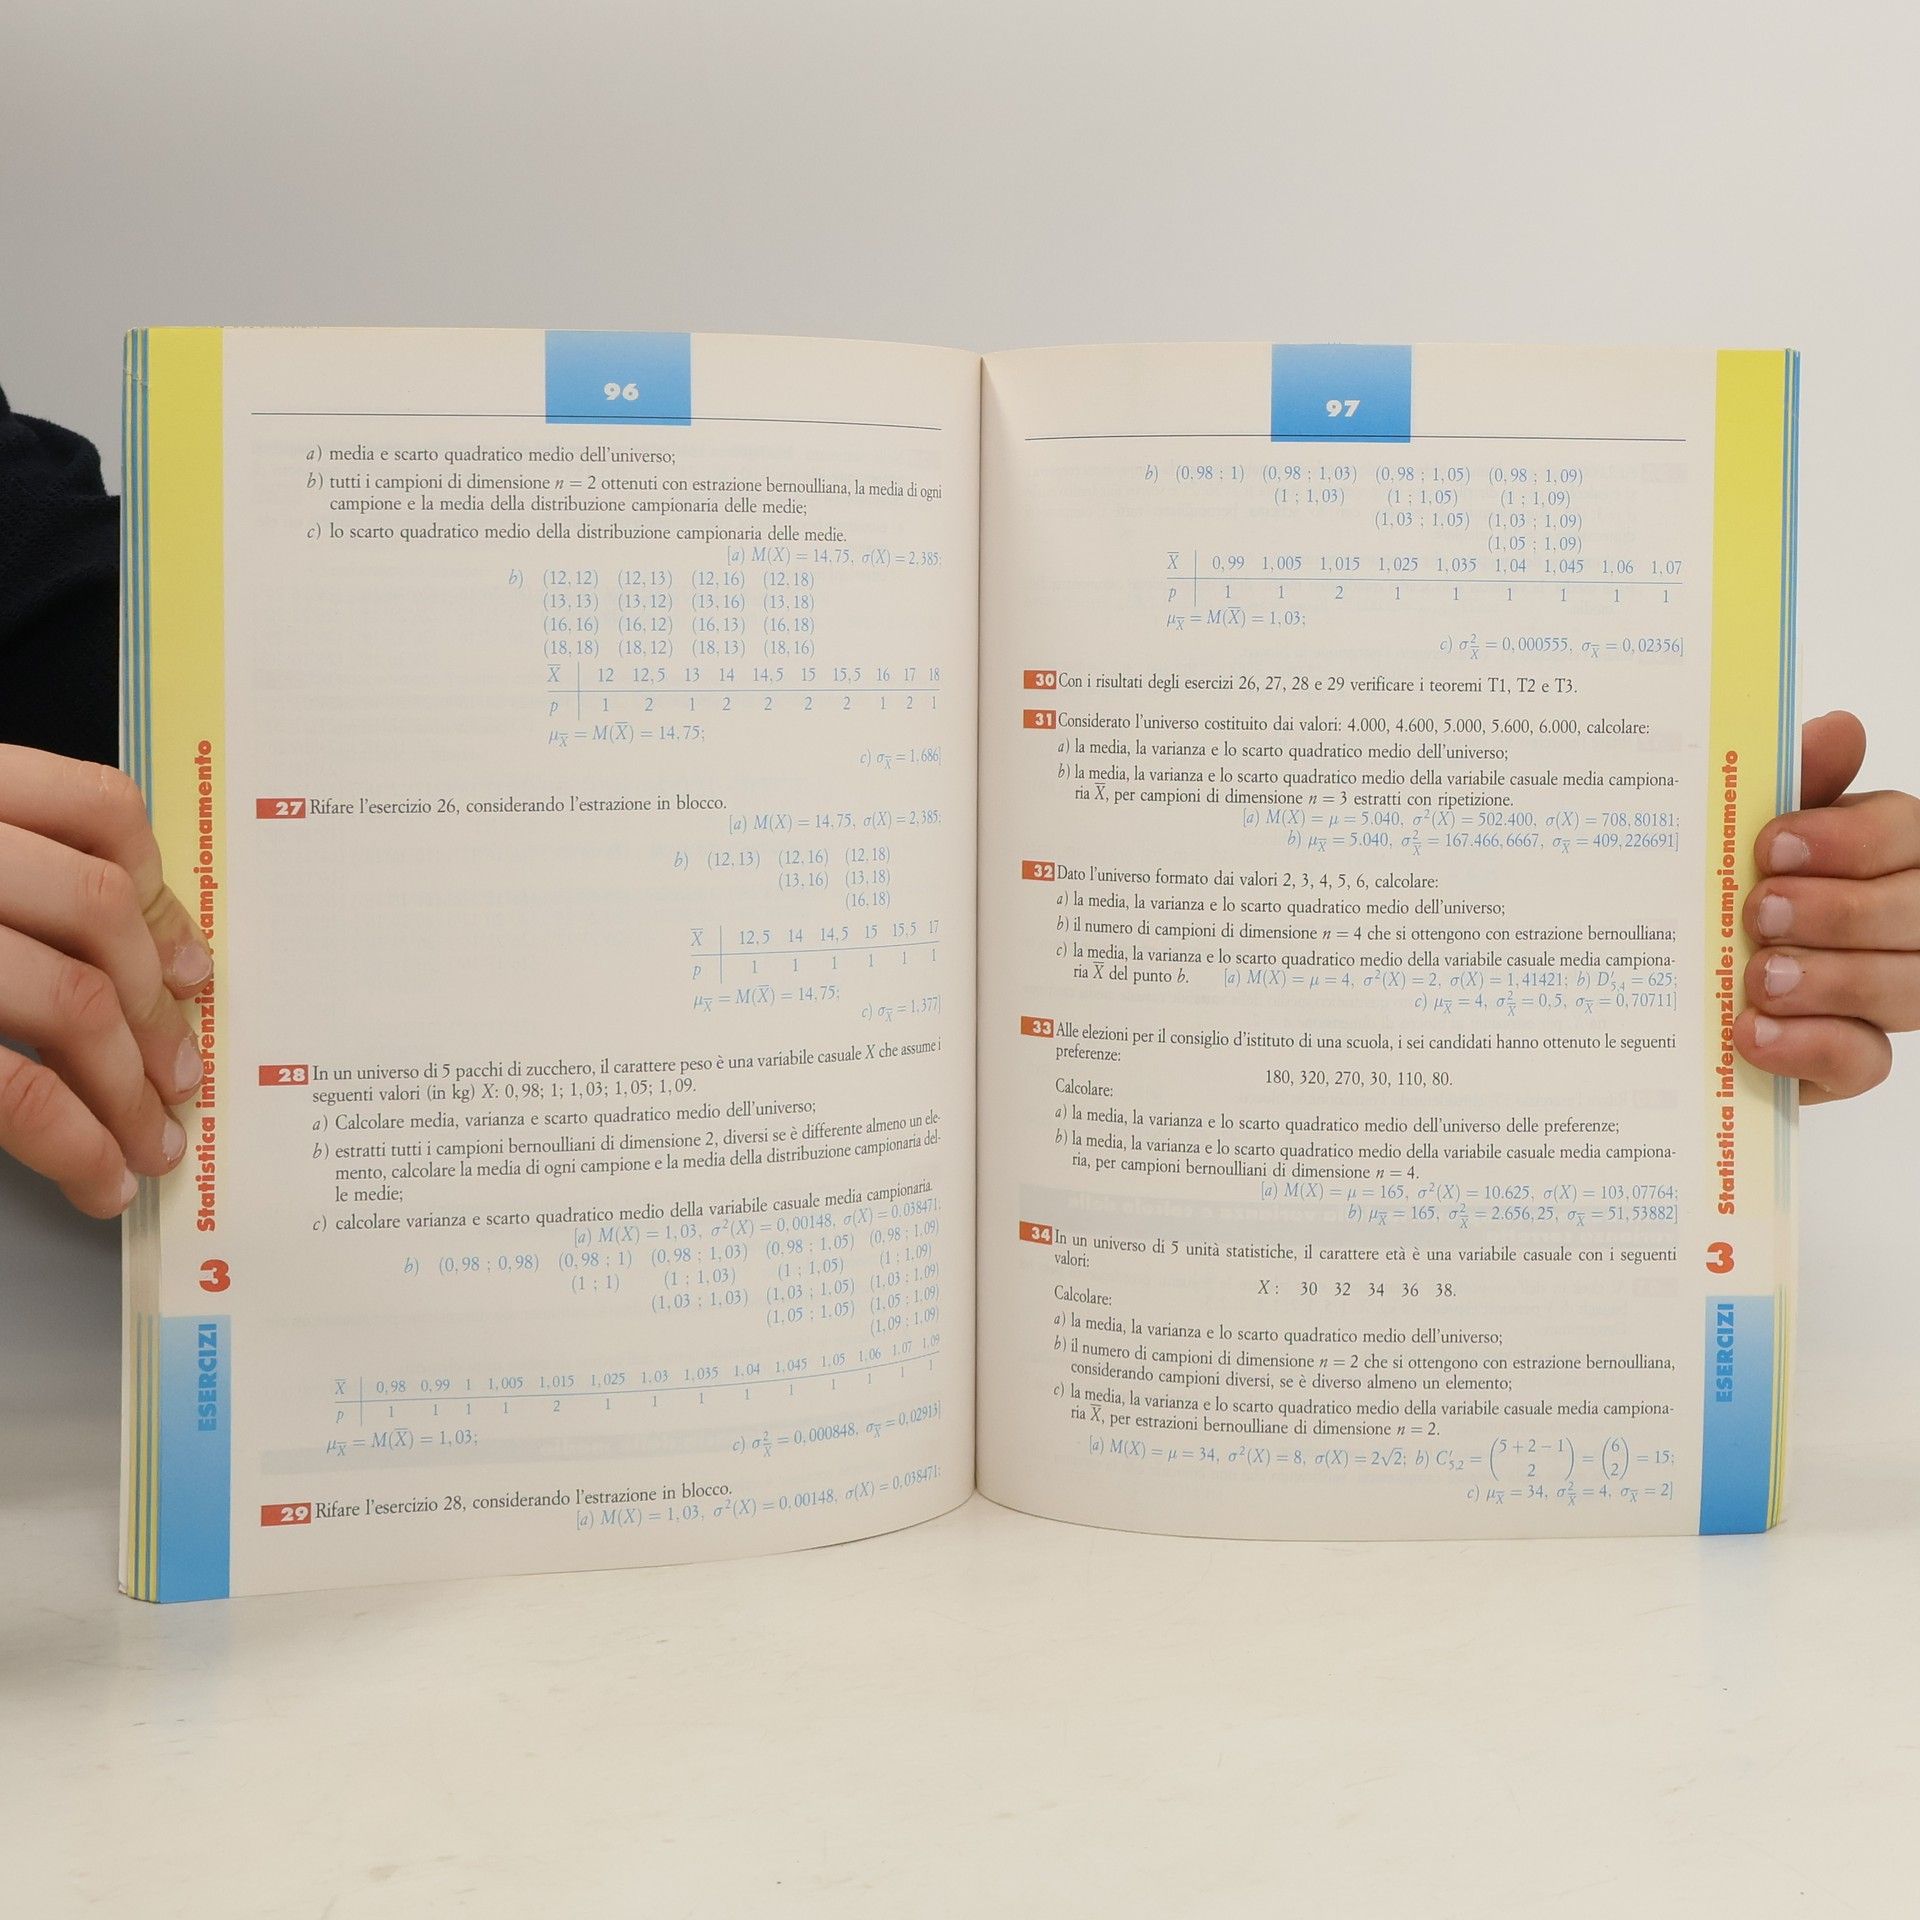 96
a) media e scarto quadratico medio dell'universo;
b) tutti i campioni di dimensione n = 2 ottenuti con estrazione bernoulliana, la media di ogni
campione e la media della distribuzione campionaria delle medie;
c) lo scarto quadratico medio della distribuzione campionaria delle medie.
[a) M(X) = 14,75, σ(X) = 2,385;
b) (12,12) (12,13) (12,16) (12,18)
(13,13) (13,12) (13,16) (13,18)
(16,16) (16,12) (16,13) (16,18)
(18,18) (18,12) (18,13) (18,16)
X̅ 12 12,5 13 14 14,5 15 15,5 16 17 18
p 1 2 1 2 2 2 2 1 2 1
μX̅ = M(X̅) = 14,75;
c) σX̅ = 1,686]
27 Rifare l'esercizio 26, considerando l'estrazione in blocco.
[a) M(X) = 14,75, σ(X) = 2,385;
b) (12,13) (12,16) (12,18)
(13,16) (13,18)
(16,18)
X̅ 12,5 14 14,5 15 15,5 17
p 1 1 1 1 1 1
μX̅ = M(X̅) = 14,75;
c) σX̅ = 1,377]
28 In un universo di 5 pacchi di zucchero, il carattere peso è una variabile casuale X che assume i
seguenti valori (in kg) X: 0,98; 1; 1,03; 1,05; 1,09.
a) Calcolare media, varianza e scarto quadratico medio dell'universo;
b) estratti tutti i campioni bernoulliani di dimensione 2, diversi se è differente almeno un ele-
mento, calcolare la media di ogni campione e la media della distribuzione campionaria del-
le medie;
c) calcolare varianza e scarto quadratico medio della variabile casuale media campionaria.
[a) M(X) = 1,03, σ²(X) = 0,00148, σ(X) = 0,038471;
b) (0,98 ; 0,98) (0,98 ; 1) (0,98 ; 1,03) (0,98 ; 1,05) (0,98 ; 1,09)
(1 ; 1) (1 ; 1,03) (1 ; 1,05) (1 ; 1,09)
(1,03 ; 1,03) (1,03 ; 1,05) (1,03 ; 1,09)
(1,05 ; 1,05) (1,05 ; 1,09)
(1,09 ; 1,09)
X̅ 0,98 0,99 1 1,005 1,015 1,025 1,03 1,035 1,04 1,045 1,05 1,06 1,07 1,09
p 1 1 1 1 2 1 1 1 1 1 1 1 1 1
μX̅ = M(X̅) = 1,03;
c) σ²X̅ = 0,000848, σX̅ = 0,02913]
29 Rifare l'esercizio 28, considerando l'estrazione in blocco.
[a) M(X) = 1,03, σ²(X) = 0,00148, σ(X) = 0,038471;
3 Statistica inferenziale: campionamento
ESERCIZI
97
b) (0,98 ; 1) (0,98 ; 1,03) (0,98 ; 1,05) (0,98 ; 1,09)
(1 ; 1,03) (1 ; 1,05) (1 ; 1,09)
(1,03 ; 1,05) (1,03 ; 1,09)
(1,05 ; 1,09)
X̅ 0,99 1,005 1,015 1,025 1,035 1,04 1,045 1,06 1,07
p 1 1 2 1 1 1 1 1 1
μX̅ = M(X̅) = 1,03;
c) σ²X̅ = 0,000555, σX̅ = 0,02356]
30 Con i risultati degli esercizi 26, 27, 28 e 29 verificare i teoremi T1, T2 e T3.
31 Considerato l'universo costituito dai valori: 4.000, 4.600, 5.000, 5.600, 6.000, calcolare:
a) la media, la varianza e lo scarto quadratico medio dell'universo;
b) la media, la varianza e lo scarto quadratico medio della variabile casuale media campiona-
ria X̅, per campioni di dimensione n = 3 estratti con ripetizione.
[a) M(X) = μ = 5.040, σ²(X) = 502.400, σ(X) = 708,80181;
b) μX̅ = 5.040, σ²X̅ = 167.466,6667, σX̅ = 409,226691]
32 Dato l'universo formato dai valori 2, 3, 4, 5, 6, calcolare:
a) la media, la varianza e lo scarto quadratico medio dell'universo;
b) il numero di campioni di dimensione n = 4 che si ottengono con estrazione bernoulliana;
c) la media, la varianza e lo scarto quadratico medio della variabile casuale media campiona-
ria X̅ del punto b. [a) M(X) = μ = 4, σ²(X) = 2, σ(X) = 1,41421; b) D′5,4 = 625;
c) μX̅ = 4, σ²X̅ = 0,5, σX̅ = 0,70711]
33 Alle elezioni per il consiglio d'istituto di una scuola, i sei candidati hanno ottenuto le seguenti
preferenze:
180, 320, 270, 30, 110, 80.
Calcolare:
a) la media, la varianza e lo scarto quadratico medio dell'universo delle preferenze;
b) la media, la varianza e lo scarto quadratico medio della variabile casuale media campiona-
ria, per campioni bernoulliani di dimensione n = 4.
[a) M(X) = μ = 165, σ²(X) = 10.625, σ(X) = 103,07764;
b) μX̅ = 165, σ²X̅ = 2.656,25, σX̅ = 51,53882]
34 In un universo di 5 unità statistiche, il carattere età è una variabile casuale con i seguenti
valori:
X : 30 32 34 36 38.
Calcolare:
a) la media, la varianza e lo scarto quadratico medio dell'universo;
b) il numero di campioni di dimensione n = 2 che si ottengono con estrazione bernoulliana,
considerando campioni diversi, se è diverso almeno un elemento;
c) la media, la varianza e lo scarto quadratico medio della variabile casuale media campiona-
ria X̅, per estrazioni bernoulliane di dimensione n = 2.
[a) M(X) = μ = 34, σ²(X) = 8, σ(X) = 2√2; b) C′5,2 = (5 + 2 − 1 2) = (6 2) = 15;
c) μX̅ = 34, σ²X̅ = 4, σX̅ = 2]
3 Statistica inferenziale: campionamento
ESERCIZI